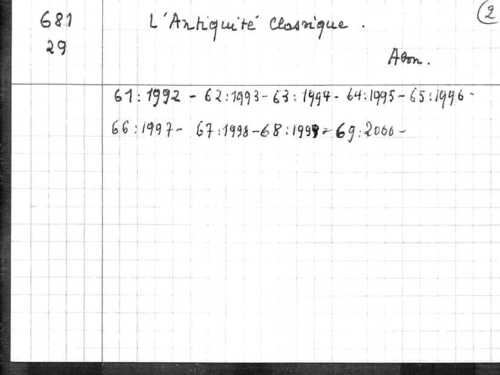 681 L'Antiquité Classique. 2
29
Abon.
61:1992 - 62:1993 - 63:1994 - 64:1995 - 65:1996 -
66:1997 - 67:1998 - 68:1999 - 69:2000 -